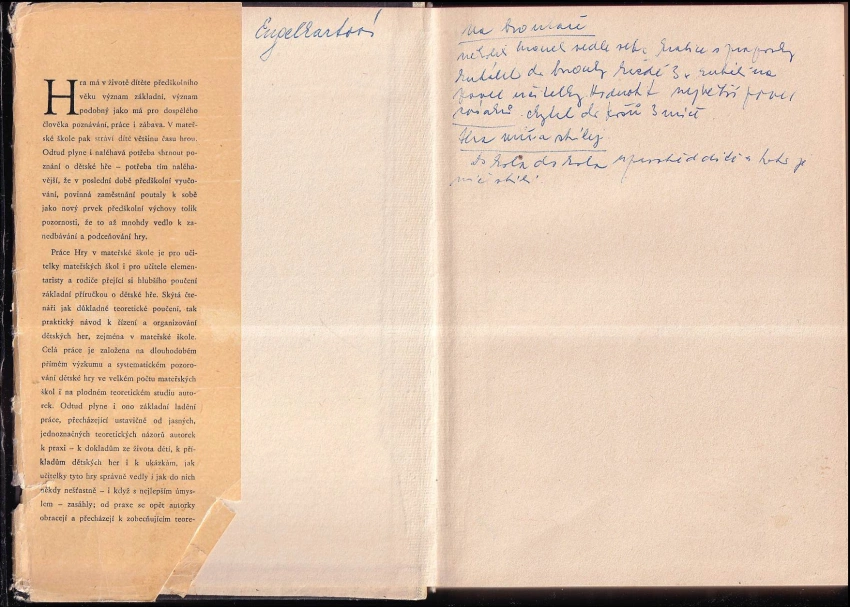 Hra má v životě dítěte předškolního
věku význam základní, význam
podobný jako má pro dospělého
člověka poznávání, práce i zábava. V mateř-
ské škole pak stráví dítě většinu času hrou.
Odtud plyne i naléhavá potřeba shrnout po-
znání o dětské hře – potřeba tím naléha-
vější, že v poslední době předškolní vyučo-
vání, povinná zaměstnání poutaly k sobě
jako nový prvek předškolní výchovy tolik
pozornosti, že to až mnohdy vedlo k za-
nedbávání a podceňování hry.
Práce Hry v mateřské škole je pro uči-
telky mateřských škol i pro učitele elemen-
taristy a rodiče přející si hlubšího poučení
základní příručkou o dětské hře. Skýtá čte-
náři jak důkladné teoretické poučení, tak
praktický návod k řízení a organizování
dětských her, zejména v mateřské škole.
Celá práce je založena na dlouhodobém
přímém výzkumu a systematickém pozoro-
vání dětské hry ve velkém počtu mateřských
škol i na plodném teoretickém studiu auto-
rek. Odtud plyne i ono základní ladění
práce, přecházející ustavičně od jasných,
jednoznačných teoretických názorů autorek
k praxi – k dokladům ze života dětí, k pří-
kladům dětských her i k ukázkám, jak
učitelky tyto hry správně vedly i jak do nich
někdy nešťastně – i když s nejlepším úmys-
lem – zasáhly; od praxe se opět autorky
obracejí a přecházejí k zobecňujícím teore-
Engelhartová
Na
vedle sebe
do 3
na
povel učitelky největší
3 míč
Hra
Do kola do kola a koho je